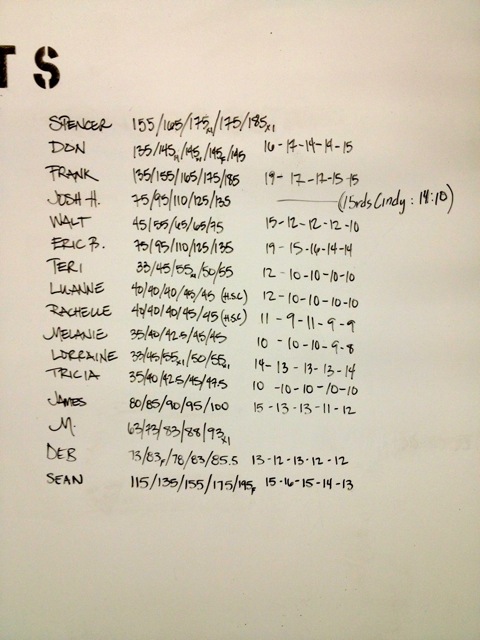 TS
SPENCER 155/165/175x1/175/185x1
DON 135/145/145/145F/145 16-17-14-14-15
FRANK 135/155/165/175/185 19-17-12-15-15
JOSH H. 75/95/110/125/135 (15rds Cindy: 14:10)
WALT 45/55/65/65/75 15-12-12-12-10
ERIC B. 75/95/110/125/135 19-15-16-14-14
TERI 33/45/55x1/50/55 12-10-10-10-10
LUANNE 40/40/40/45/45 (H.S.C) 12-10-10-10-10
RACHELLE 40/40/40/45/45 (H.S.C) 11-9-11-9-9
MELANIE 35/40/42.5/45/45 10-10-10-9-8
LORRAINE 33/45/55x1/50/55x1 14-13-13-13-14
TRICIA 35/40/42.5/45/47.5 10-10-10-10-10
JAMES 80/85/90/95/100 15-13-13-11-12
M. 63/73/83/88/93x1
DEB 73/83F/78/83/85.5 13-12-13-12-12
SEAN 115/135/155/175/195F 15-16-15-14-13